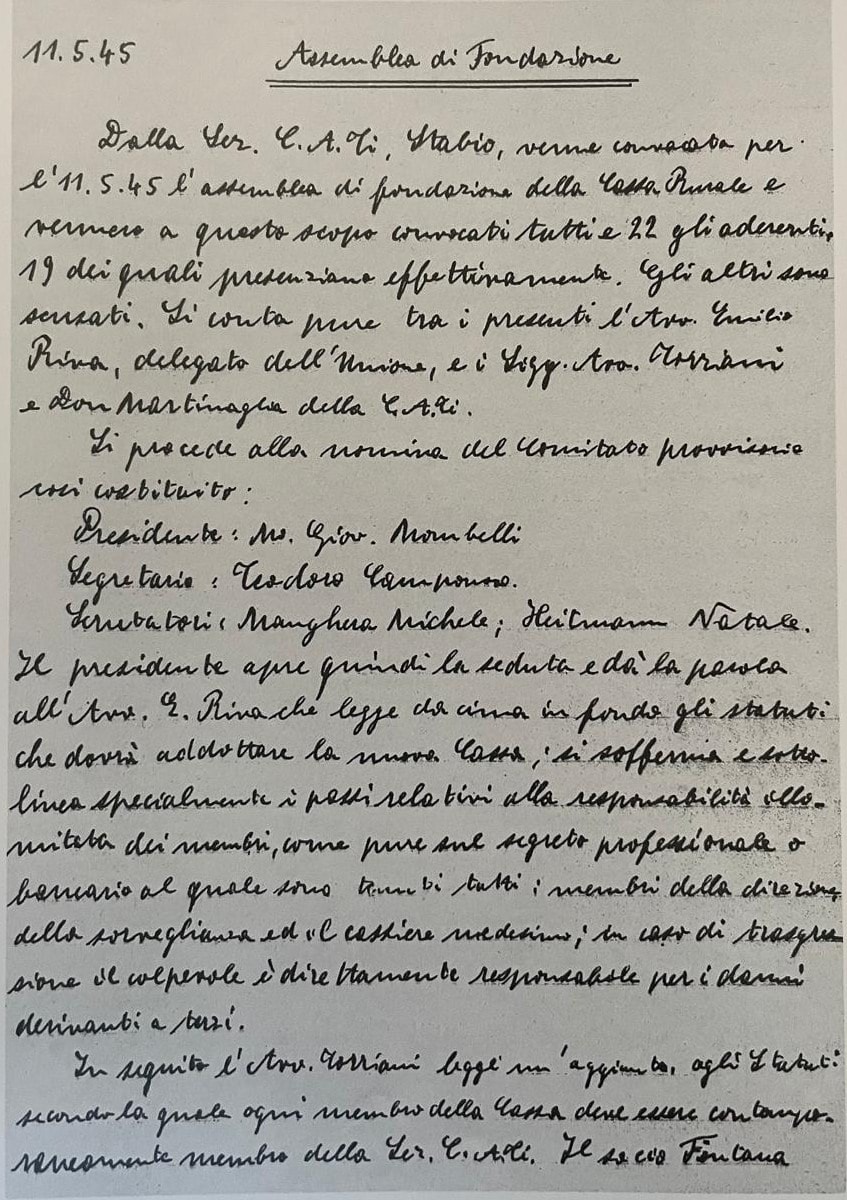 11.5.45 Assemblea di Fondazione
Dalla Sez. C.A.Ti, Stabio, venne convocata per
l'11.5.45 l'assemblea di fondazione della Cassa Rurale e
vennero a questo scopo convocati tutti e 22 gli aderenti,
19 dei quali presenziano effettivamente. Gli altri sono
scusati. Si conta pure tra i presenti l'Avv. Emilio
Riva, delegato dell'Unione, e i Sigg. Avv. Torriani
e Don Martinaglia della C.A.Ti.
Si procede alla nomina del Comitato provvisorio
così costituito:
Presidente: Mo. Giov. Mombelli
Segretario: Teodoro Camponovo.
Scrutatori: Manghera Michele; Heitmann Natale.
Il presidente apre quindi la seduta e dà la parola
all'Avv. E. Riva che legge da cima in fondo gli statuti
che dovrà addottare la nuova Cassa; si sofferma e sotto-
linea specialmente i passi relativi alla responsabilità illi-
mitata dei membri, come pure sul segreto professionale o
bancario al quale sono tenuti tutti i membri della direzione,
della sorveglianza ed il cassiere medesimo; in caso di trasgres-
sione il colpevole è direttamente responsabile per i danni
derivanti a terzi.
In seguito l'Avv. Torriani legge un'aggiunta, agli Statuti
secondo la quale ogni membro della Cassa deve essere contempo-
raneamente membro della Sez. C.A.Ti. Il socio Fontana